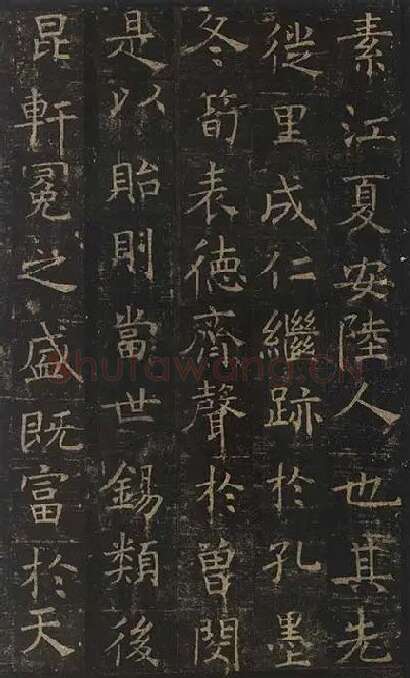 素江夏安陸人也其先
徙里成仁繼跡於孔墨
冬筍表德齊聲於曾閔
是以貽則當世錫類後
昆軒冕之盛既富於天
shufawang.CN